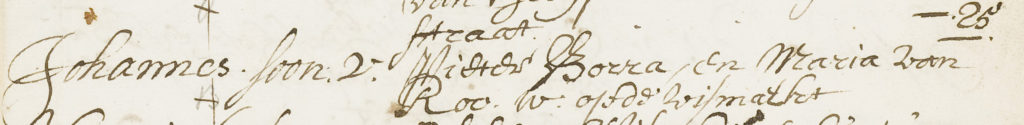 straat.
25
Johannes. soon. v: Pieter Borra, en Maria van
Roo. w: op de Vismarkt